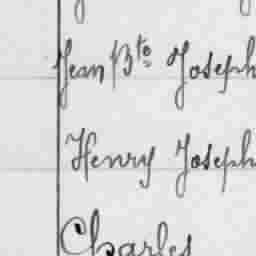 Jean Bte Joseph
Henry Joseph
Charles